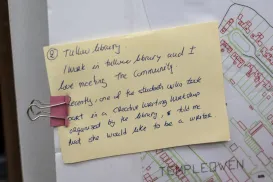 ② Tullow library
I work in tullow library and I
love meeting the community.
Recently, one of the students who took
part in a creative writing workshop
organised by the library, told me
that she would like to be a writer
TEMPLEOWEN